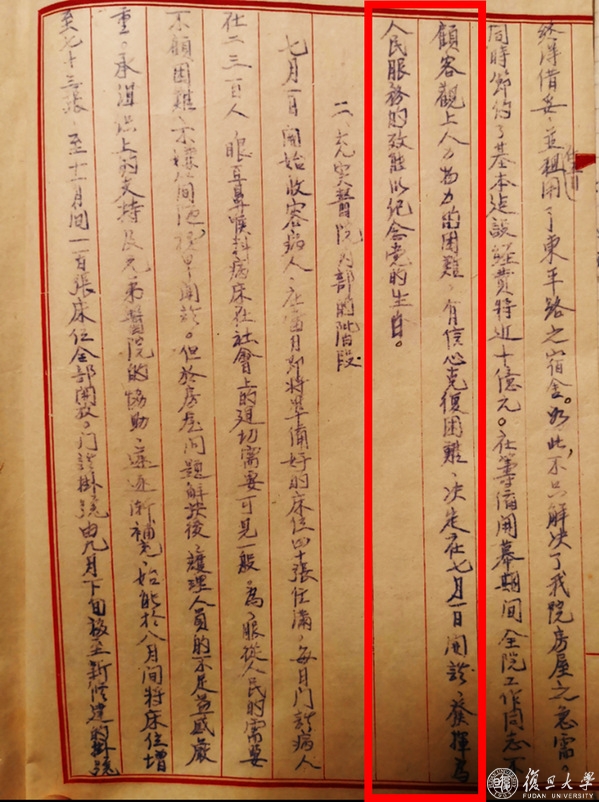 然得借妥，並租用了東平路之宿舍。如此，不只解决了我院房屋之急需。
同時節約了基本建設經費將近十億元。在籌備開幕期間全院工作同志不
顧客觀上人力物力的困難，有信心克復困難，决定在七月一日開診，發揮為
人民服務的效能以紀念党的生日。
二、充实醫院内部的階段
七月一日開始收容病人，在當月即將準備好的床位四十張住滿，每月門診病人
在二三百人，眼耳鼻喉科病床在社會上的廹切需要可見一般。為，服從人民的需要
不顧困難，不嫌人間地，提早開診。但於房屋问題解决後，護理人員的不足益感嚴
重。承組织上的支持及兄弟醫院的協助，遂逐漸補充，始能於八月間將床位增
至七十三張，至十一月间一百張床位全部開放。门診掛號由九月下旬移至新修建的掛號
復旦大學
FUDAN UNIVERSITY